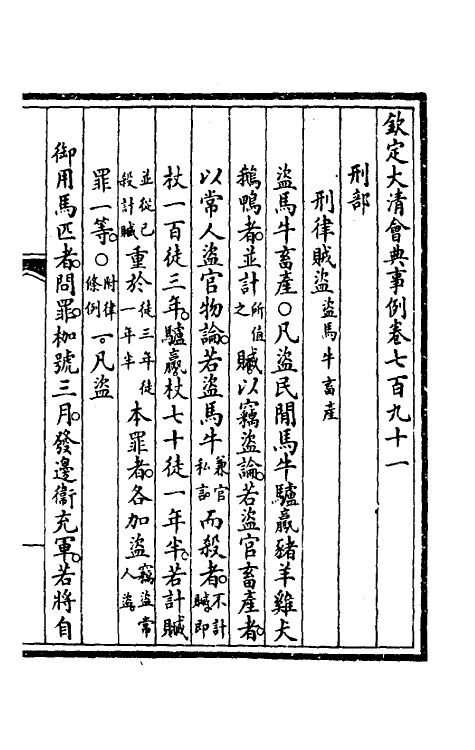 欽定大清會典事例卷七百九十一
刑部
刑律賊盜盜馬牛畜產
盜馬牛畜產○凡盜民間馬牛驢驘豬羊雞犬
鵝鴨者並計所值之贓以竊盜論若盜官畜產者
以常人盜官物論若盜馬牛兼官私言而殺者不計贓即
杖一百徒三年驢驘杖七十徒一年半若計贓
並從已殺計贓重於徒三年徒一年半本罪者各加盜竊盜常人盜
罪一等○附律條例一凡盜
御用馬匹者問罪枷號三月發邊衞充軍若將自